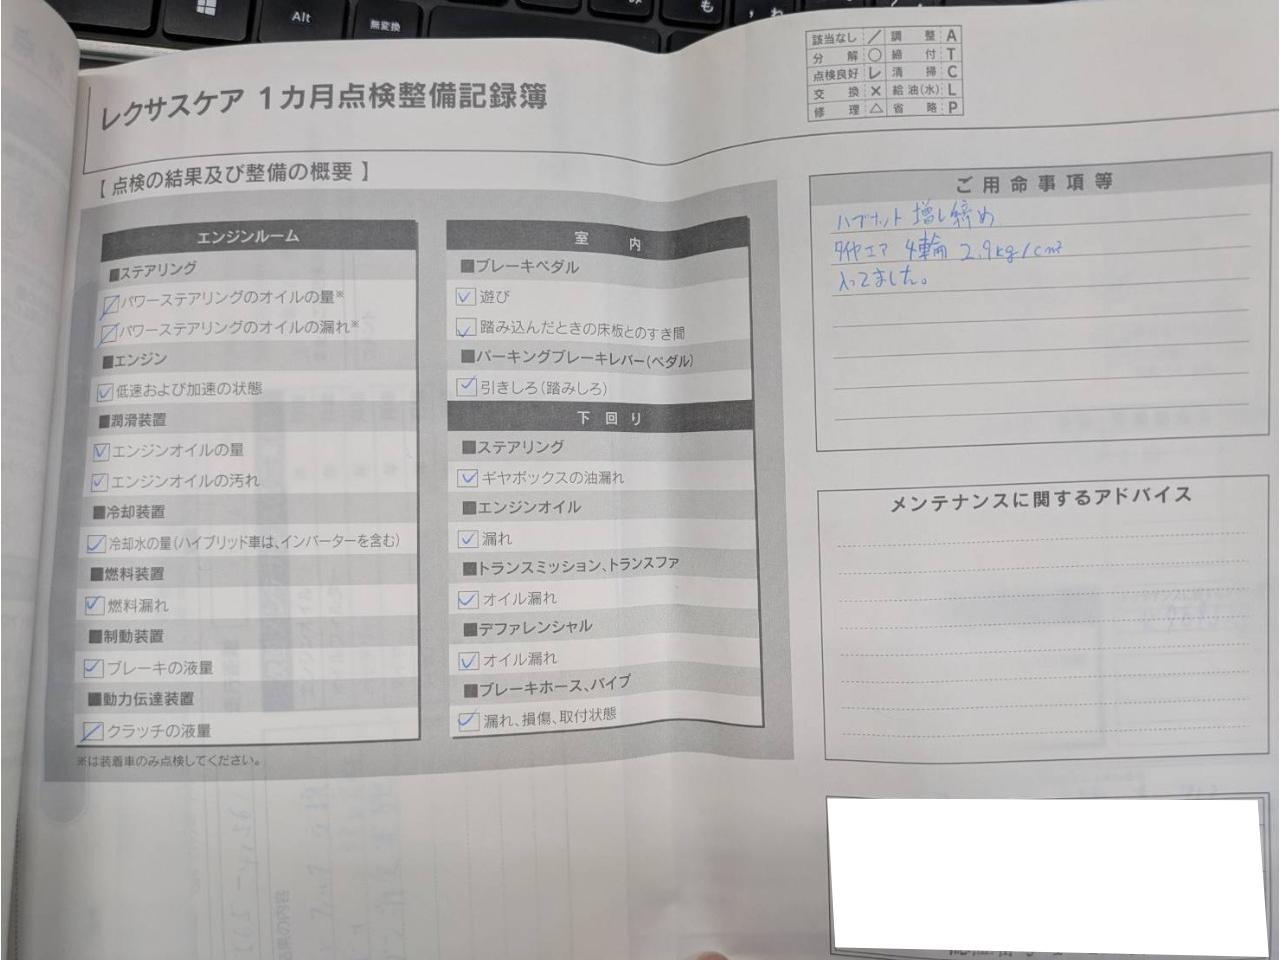 Alt
無変換
も
レクサスケア 1カ月点検整備記録簿
該当なし ／ 調整 A
分解 ○ 締付 T
点検良好 レ 清掃 C
交換 × 給油(水) L
修理 △ 省略 P
【 点検の結果及び整備の概要 】
エンジンルーム
■ステアリング
パワーステアリングのオイルの量※
パワーステアリングのオイルの漏れ※
■エンジン
低速および加速の状態
■潤滑装置
エンジンオイルの量
エンジンオイルの汚れ
■冷却装置
冷却水の量(ハイブリッド車は、インバーターを含む)
■燃料装置
燃料漏れ
■制動装置
ブレーキの液量
■動力伝達装置
クラッチの液量
※は装着車のみ点検してください。
室内
■ブレーキペダル
遊び
踏み込んだときの床板とのすき間
■パーキングブレーキレバー(ペダル)
引きしろ(踏みしろ)
下回り
■ステアリング
ギヤボックスの油漏れ
■エンジンオイル
漏れ
■トランスミッション、トランスファ
オイル漏れ
■デファレンシャル
オイル漏れ
■ブレーキホース、パイプ
漏れ、損傷、取付状態
ご用命事項等
ハブナット 増し締め
タイヤエア 4輪 2.9kg/cm²
入ってました。
メンテナンスに関するアドバイス